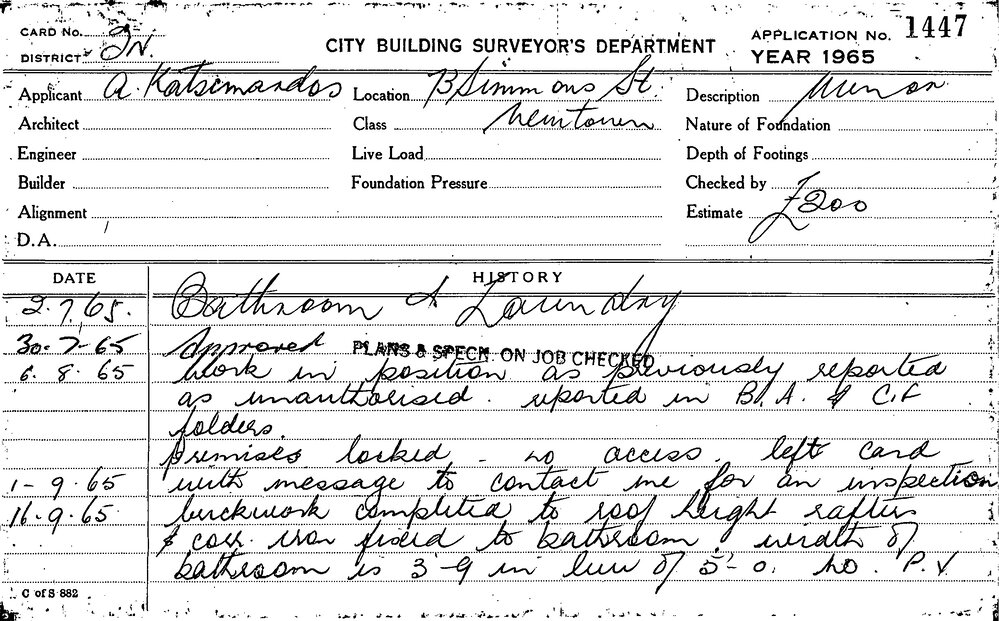 CARD No. 9N.
DISTRICT
CITY BUILDING SURVEYOR'S DEPARTMENT
APPLICATION No. 1447
YEAR 1965
Applicant A. Katsimandos
Location 73 Simmons St.
Description Minor
Architect
Class Newtown
Nature of Foundation
Engineer
Live Load
Depth of Footings
Builder
Foundation Pressure
Checked by
Alignment
Estimate £200
D.A.
DATE
HISTORY
2.7.65. Bathroom & Laundry
30-7-65 Approved PLANS & SPECN. ON JOB CHECKED
6.8.65 Work in position as previously reported
as unauthorised. reported in B.A. & C.F
folders.
premises locked - no access. left card
1-9.65 with message to contact me for an inspection
16.9.65 brickwork completed to roof height rafters
& corr iron fixed to bathroom. width of
bathroom is 3'-9 in lieu of 5'-0. no. P.V
C of S 882